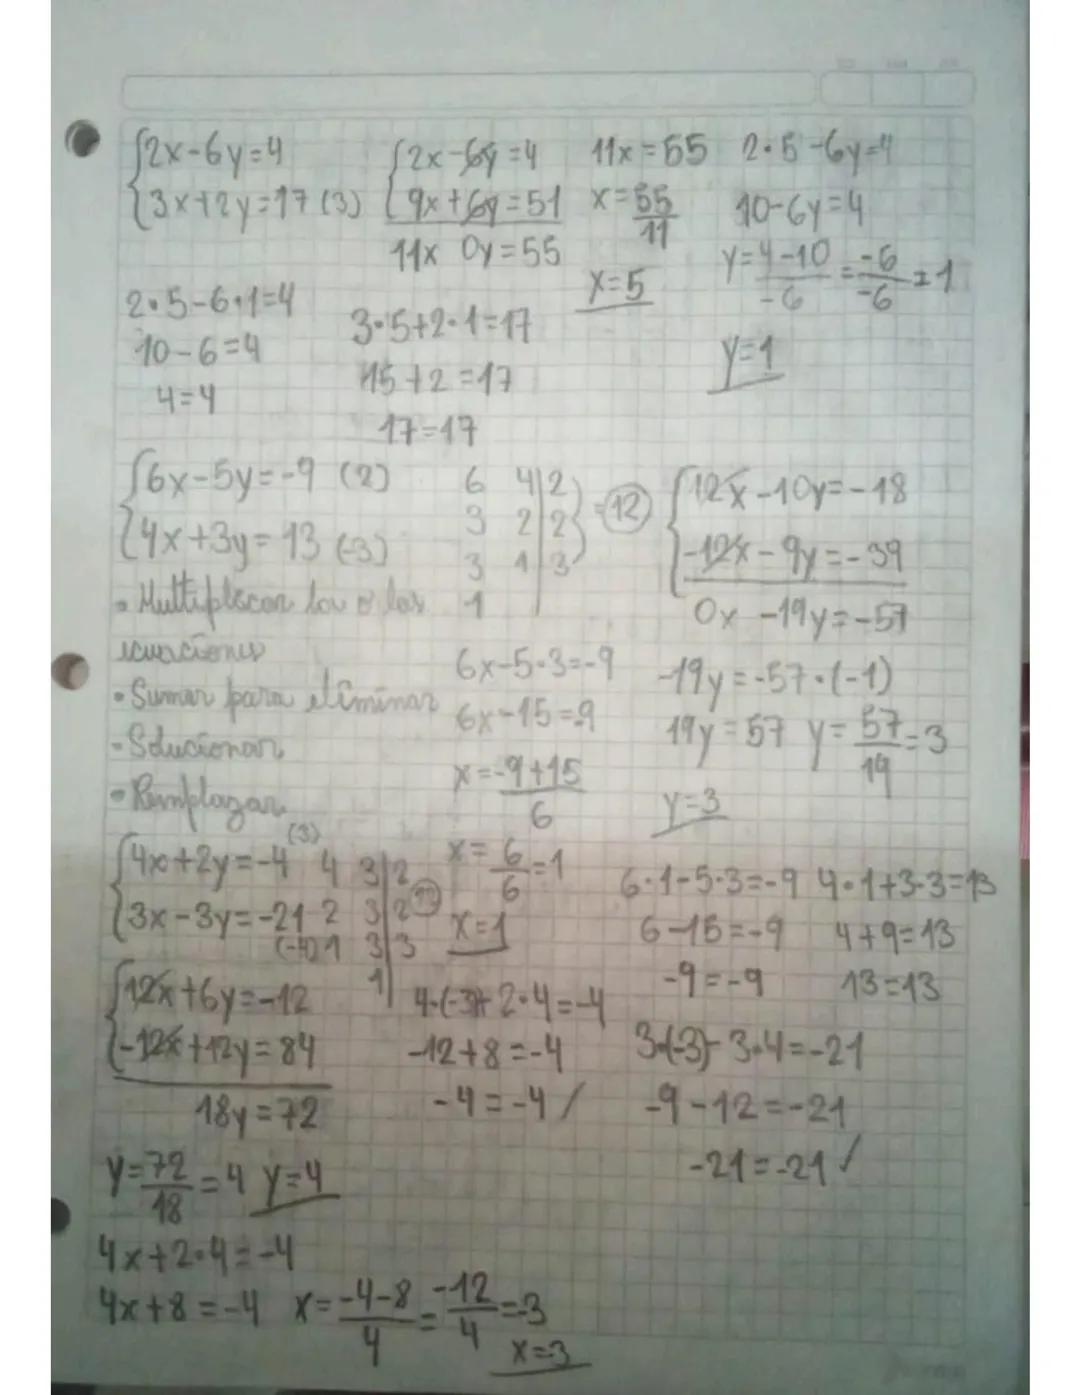 2x-6y=4
3x+2y=17 (3)
2x-6y=4
9x+6y=51
11x 0y=55
11x=55
x=55/11
x=5
2•5-6y=4
10-6y=4
y=4-10/-6=-6/-6=1
y=1
2•5-6•1=4
10-6=4
4=4
3•5+2•1=17
15+2=17
17=17
6x-5y=-9 (2)
4x+3y=13 (-3)
6 4|2
3 2|2 =12
3 1|3
1
12x-10y=-18
-12x-9y=-39
0x -19y=-57
• Multiplicar la o las
ecuaciones
• Sumar para eliminar
- Solucionar
• Remplazar
6x-5•3=-9
6x-15=-9
x=-9+15/6
x=6/6=1
x=1
-19y=-57•(-1)
19y=57 y=57/19=3
y=3
6•1-5•3=-9
6-15=-9
-9=-9
4•1+3•3=13
4+9=13
13=13
4x+2y=-4 (3)
3x-3y=-21 (-4)
4 3|2
2 3|2
1 3|3
1
12x+6y=-12
-12x+12y=84
18y=72
y=72/18=4 y=4
4x+2•4=-4
4x+8=-4 x=-4-8/4=-12/4=-3
x=-3
4•(-3)+2•4=-4
-12+8=-4
-4=-4 /
3•(-3)-3•4=-21
-9-12=-21
-21=-21 ✓